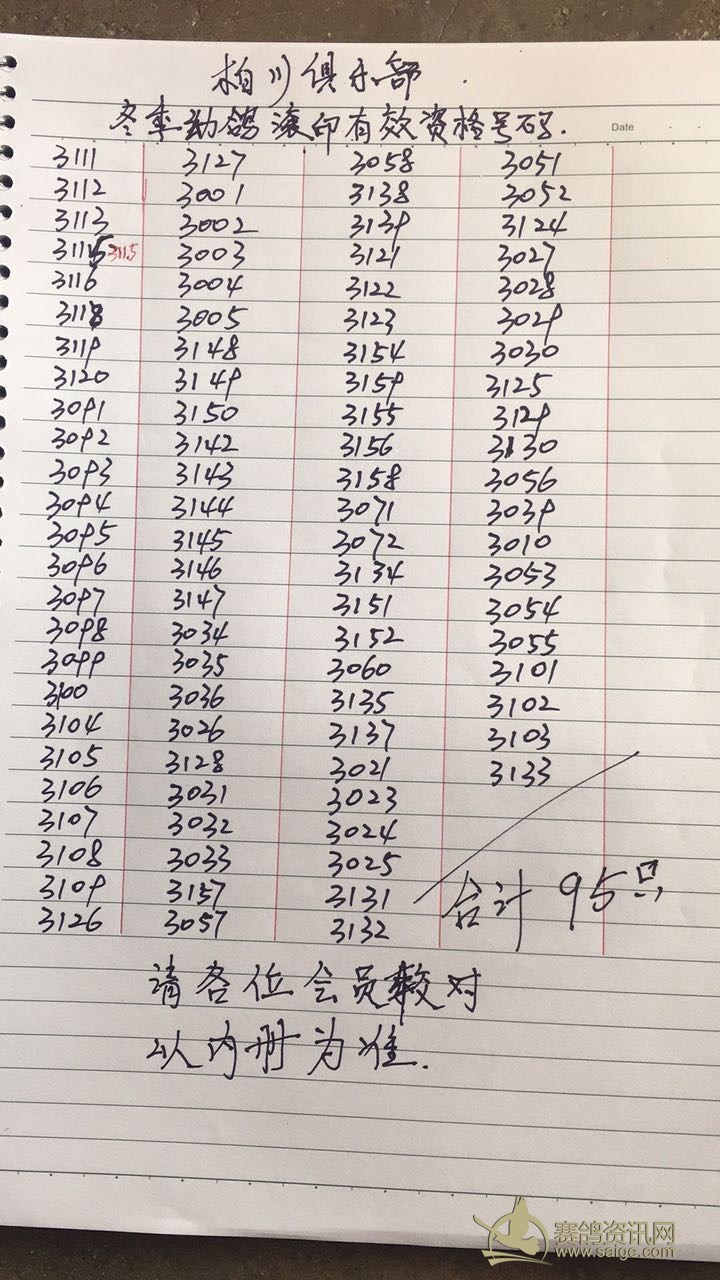 柏川俱乐部.
冬季幼鸽滚印有效资格号码.
Date
3111 3127 3058 3051
3112 3001 3138 3052
3113 3002 3139 3124
3115 3115 3003 3121 3027
3116 3004 3122 3028
3118 3005 3123 3029
3119 3148 3154 3030
3120 3149 3159 3125
3091 3150 3155 3129
3092 3142 3156 3130
3093 3143 3158 3056
3094 3144 3071 3039
3095 3145 3072 3010
3096 3146 3134 3053
3097 3147 3151 3054
3098 3034 3152 3055
3099 3035 3060 3101
3100 3036 3135 3102
3104 3026 3137 3103
3105 3128 3021 3133
3106 3031 3023
3107 3032 3024
3108 3033 3025
3109 3157 3131
3126 3057 3132
合计 95只
请各位会员校对
以内册为准.
赛鸽资讯网
www.saige.com